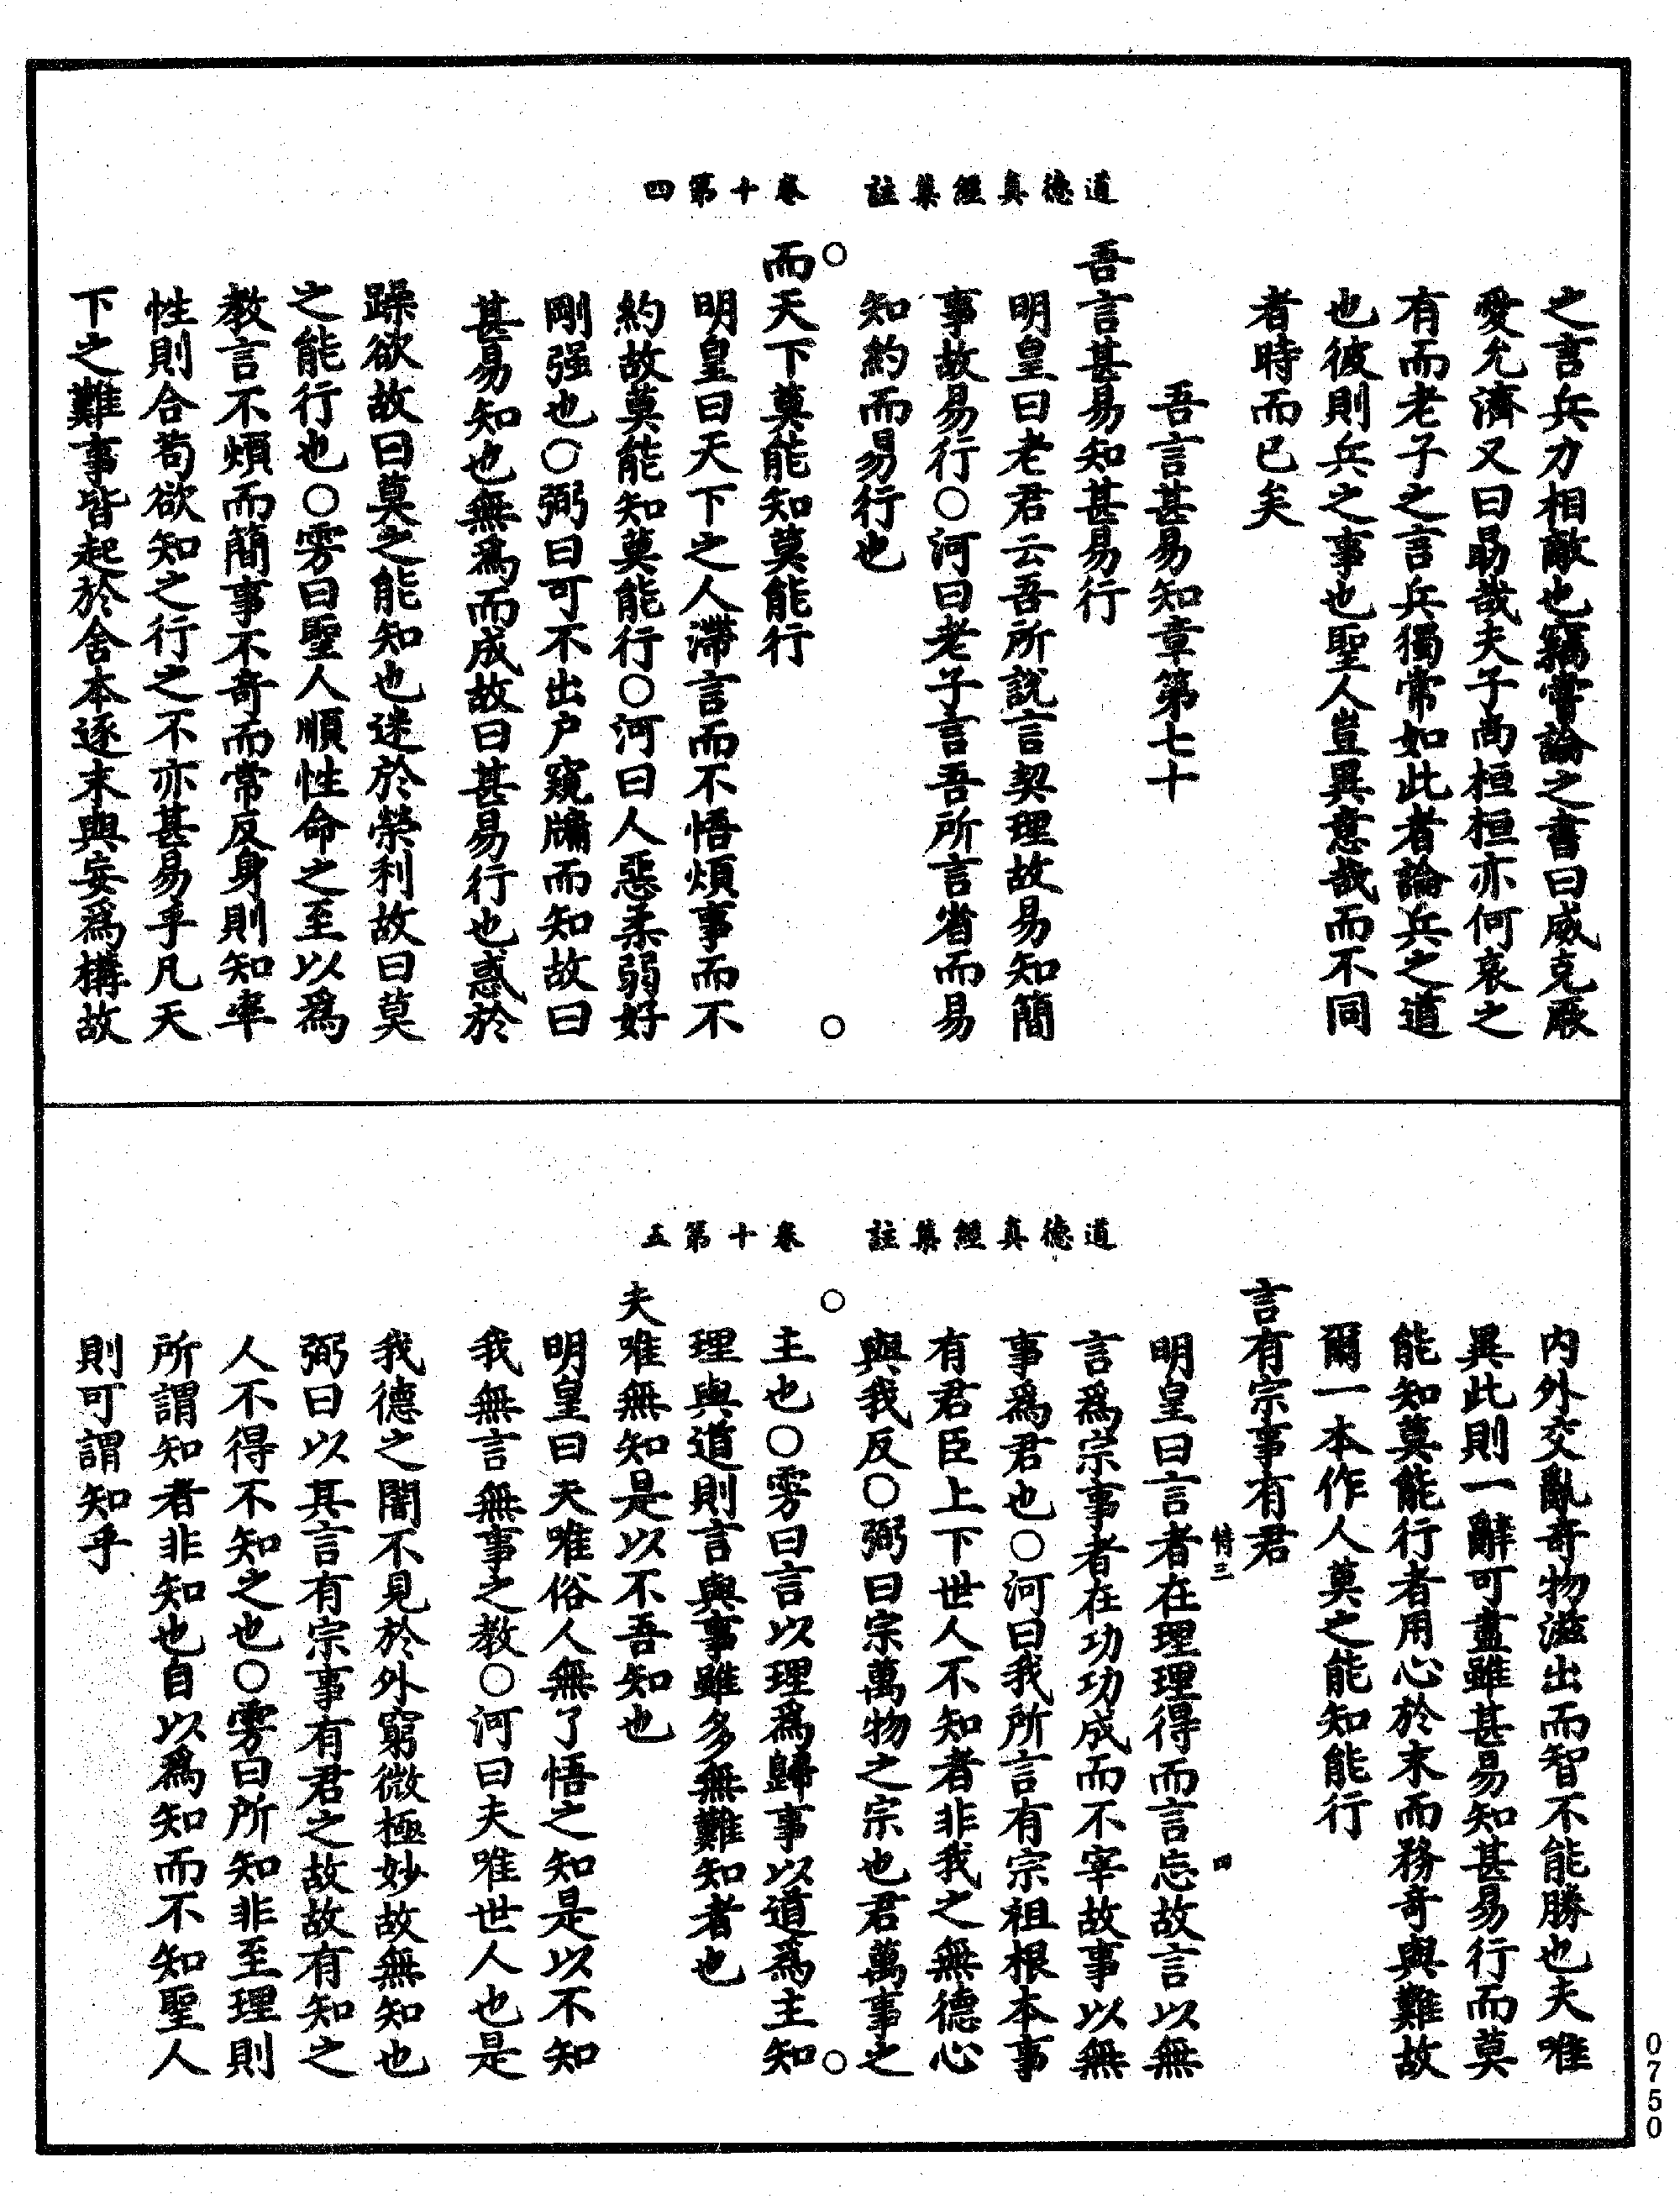 道德真經集註　卷十第四
之言兵力相敵也竊嘗論之書曰威克厥
愛允濟又曰勗哉夫子尚桓桓亦何哀之
有而老子之言兵獨常如此者論兵之道
也彼則兵之事也聖人豈異意哉而不同
者時而已矣
吾言甚易知章第七十
吾言甚易知甚易行
明皇曰老君云吾所說言契理故易知簡
事故易行○河曰老子言吾所言省而易
知約而易行也
而天下莫能知莫能行
明皇曰天下之人滯言而不悟煩事而不
約故莫能知莫能行○河曰人惡柔弱好
剛强也○弼曰可不出户窺牖而知故曰
甚易知也無爲而成故曰甚易行也惑於
躁欲故曰莫之能知也迷於榮利故曰莫
之能行也○雱曰聖人順性命之至以爲
教言不煩而簡事不奇而常反身則知率
性則合苟欲知之行之不亦甚易乎凡天
下之難事皆起於舍本逐末與妄爲構故
道德真經集註　卷十第五
內外交亂奇物滋出而智不能勝也夫唯
異此則一辭可盡雖甚易知甚易行而莫
能知莫能行者用心於末而務奇與難故
爾一本作人莫之能知能行
言有宗事有君
恃三　四
明皇曰言者在理理得而言忘故言以無
言爲宗事者在功功成而不宰故事以無
事爲君也○河曰我所言有宗祖根本事
有君臣上下世人不知者非我之無德心
與我反○弼曰宗萬物之宗也君萬事之
主也○雱曰言以理爲歸事以道爲主知
理與道則言與事雖多無難知者也
夫唯無知是以不吾知也
明皇曰夫唯俗人無了悟之知是以不知
我無言無事之教○河曰夫唯世人也是
我德之闇不見於外窮微極妙故無知也
弼曰以其言有宗事有君之故故有知之
人不得不知之也○雱曰所知非至理則
所謂知者非知也自以爲知而不知聖人
則可謂知乎
0750